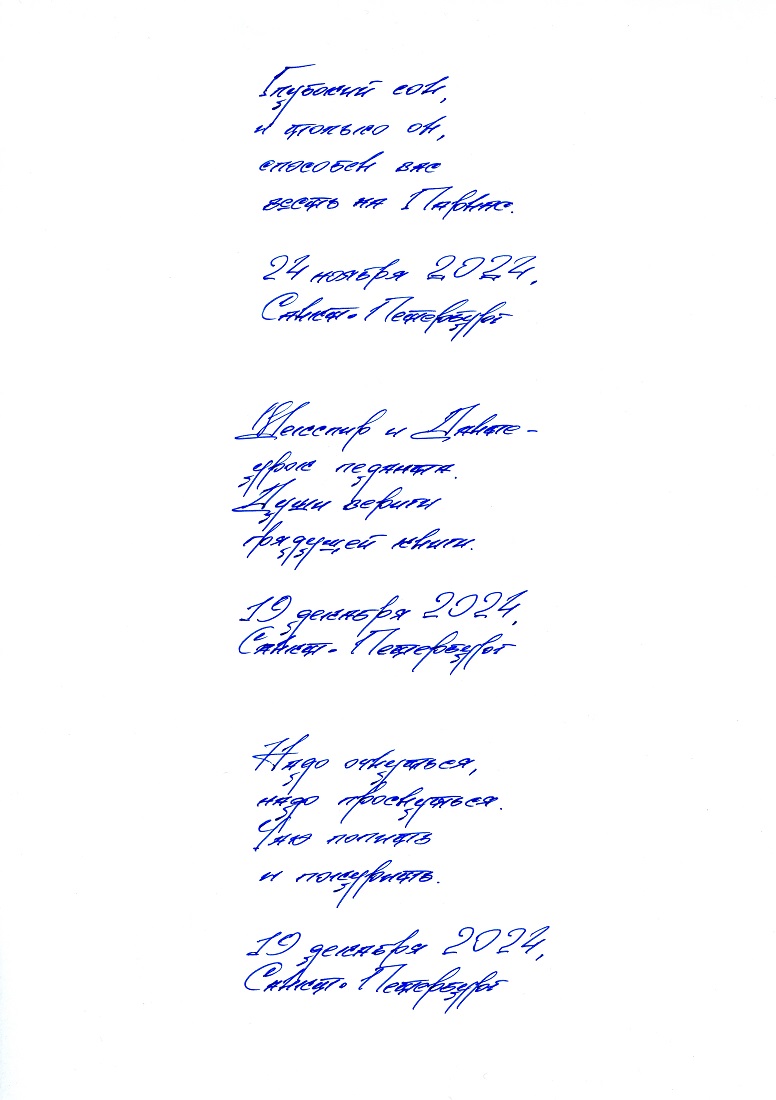 Глубокий сон,
и только он,
способен вас
весть на Парнас.
24 ноября 2024,
Санкт-Петербург
Шекспир и Данте -
урок педанта.
Души вериги
грядущей книги.
19 декабря 2024,
Санкт-Петербург
Надо очнуться,
надо проснуться.
Чаю попить
и покурить.
19 декабря 2024,
Санкт-Петербург